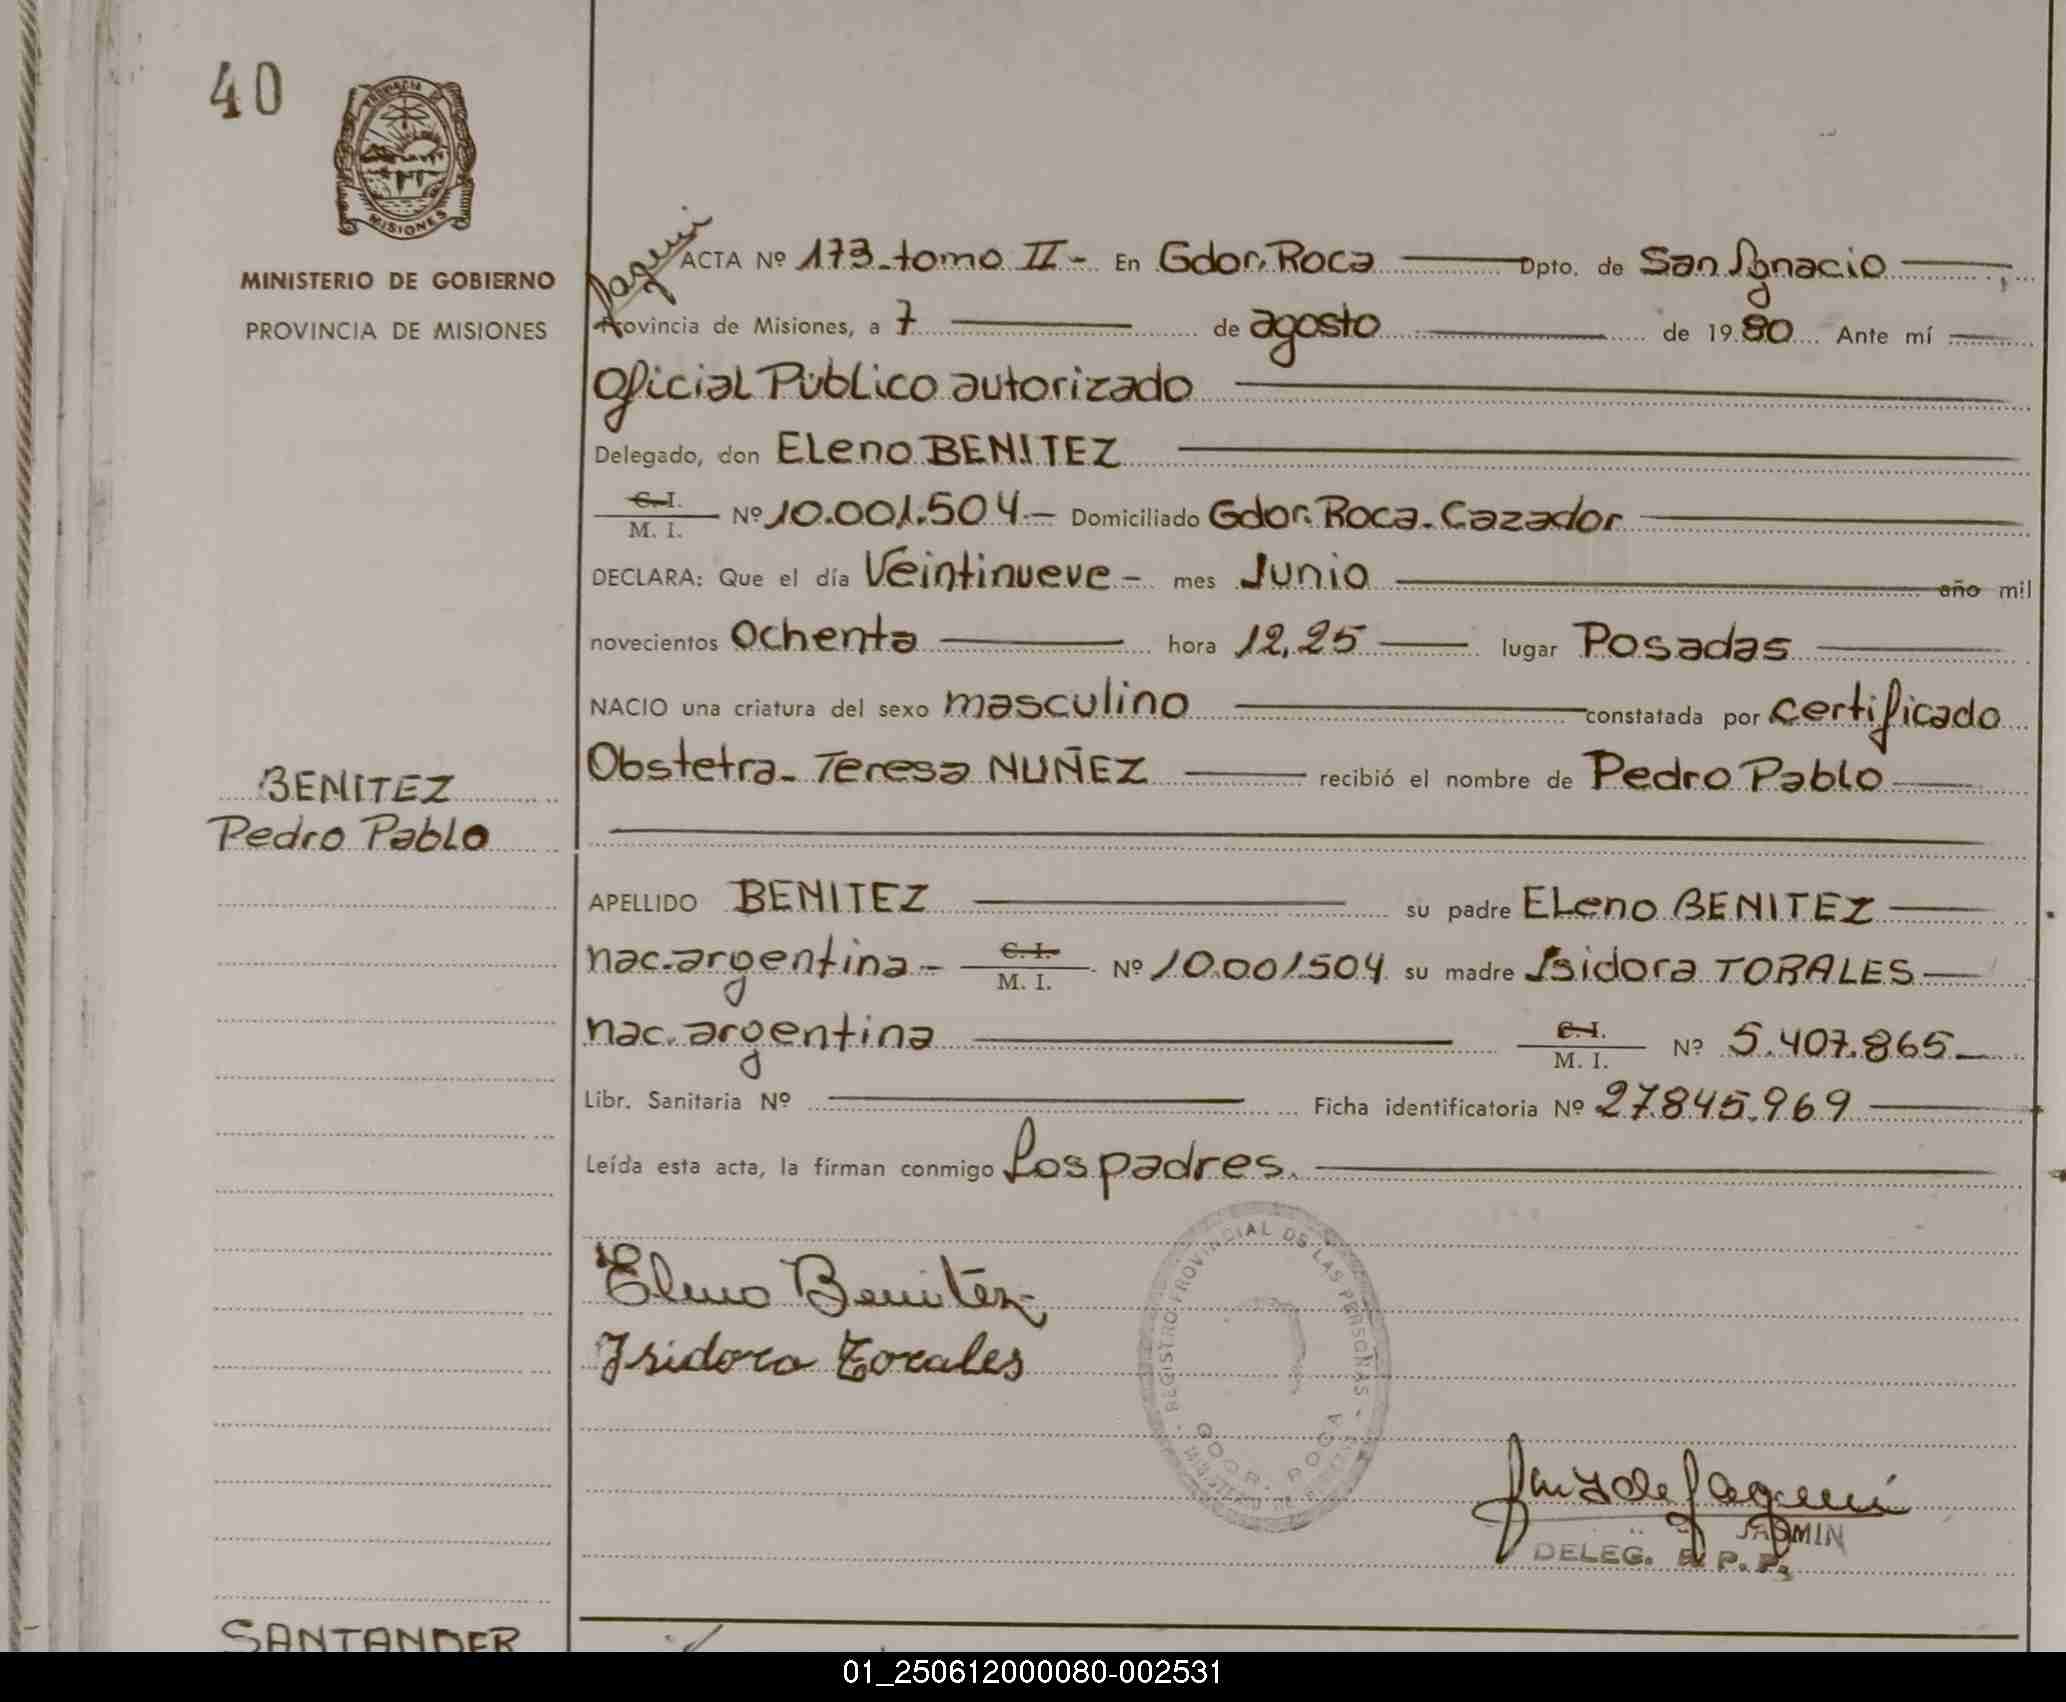 40
PROVINCIA DE
MISIONES
MINISTERIO DE GOBIERNO
PROVINCIA DE MISIONES
ACTA Nº 173-tomo II- En Gdor. Roca Dpto. de San Ignacio
Provincia de Misiones, a 7 de agosto de 1980 Ante mí
Oficial Público autorizado
Delegado, don Eleno BENITEZ
C. I.
M. I. Nº 10.001.504 - Domiciliado Gdor. Roca. Cazador
DECLARA: Que el día Veintinueve - mes Junio año mil
novecientos Ochenta hora 12,25 lugar Posadas
NACIO una criatura del sexo masculino constatada por certificado
Obstetra- Teresa NUÑEZ recibió el nombre de Pedro Pablo
BENITEZ
Pedro Pablo
APELLIDO BENITEZ su padre Eleno BENITEZ
nac. argentina - C. I. M. I. Nº 10.001.504 su madre Isidora TORALES
nac. argentina C. I. M. I. Nº 5.407.865
Libr. Sanitaria Nº Ficha identificatoria Nº 27.845.969
Leída esta acta, la firman conmigo Los padres.
Eleno Benitez
Isidora Torales
REGISTRO PROVINCIAL DE LAS PERSONAS
GDOR. ROCA
DELEG. R. P. P.
SANTANDER
01_250612000080-002531